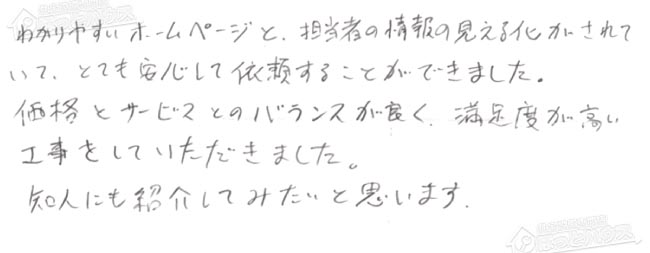 わかりやすいホームページと、担当者の情報の見える化がされて
いて、とても安心して依頼することができました。
価格とサービスとのバランスが良く、満足度が高い
工事をしていただきました。
知人にも紹介してみたいと思います.